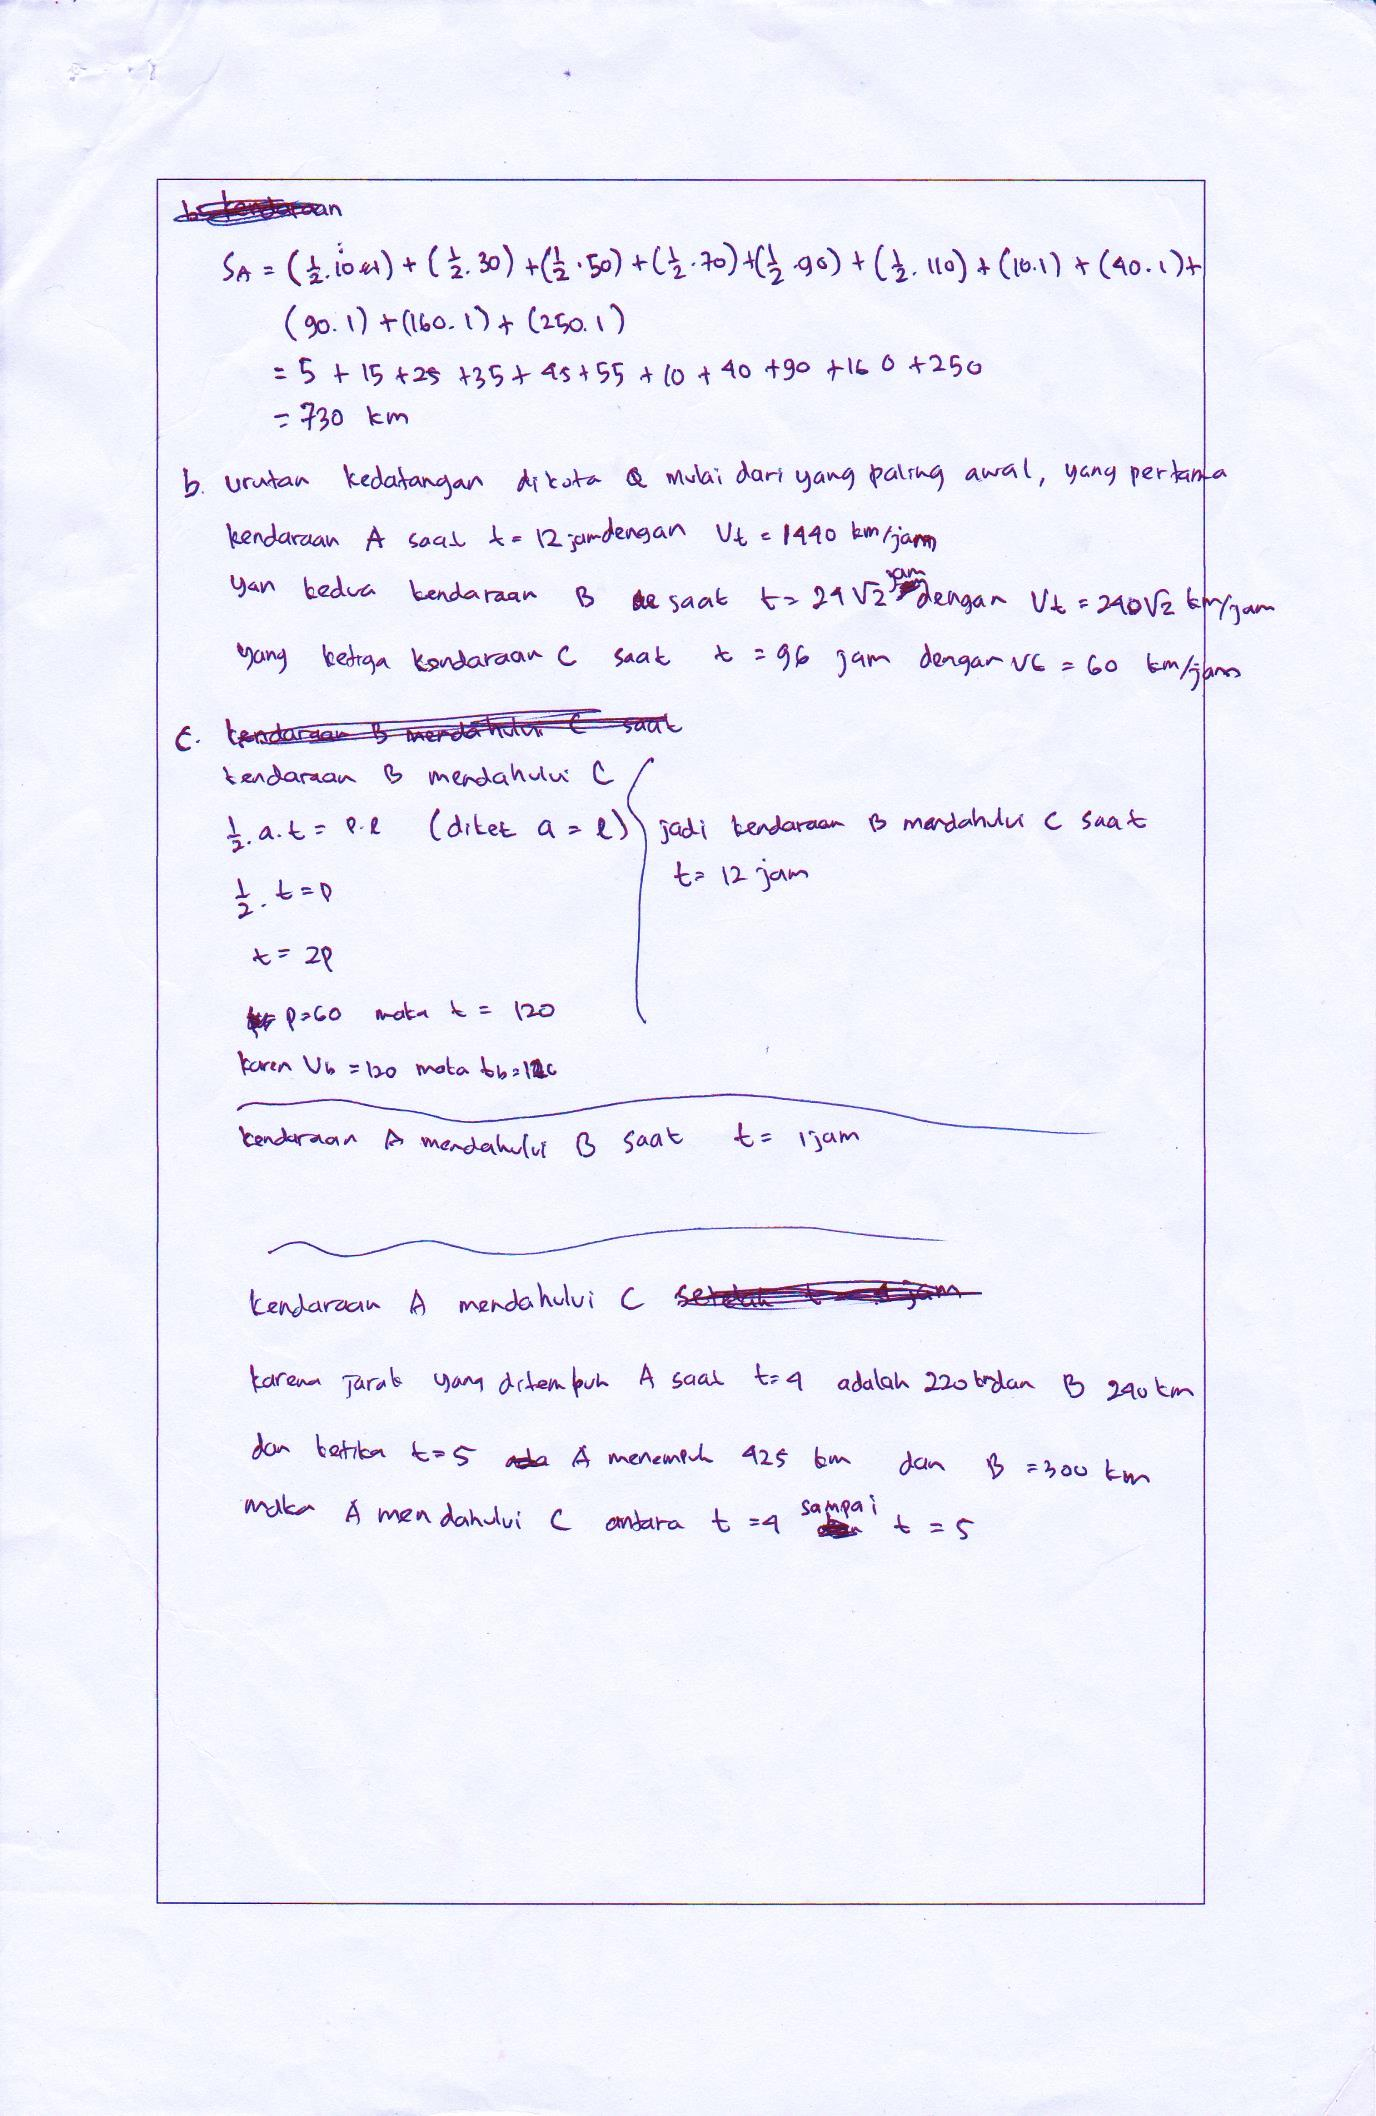 b. kendaraan
SA = (½.10.1) + (½.30) + (½.50) + (½.70) + (½.90) + (½.110) + (10.1) + (40.1) +
(90.1) + (160.1) + (250.1)
= 5 + 15 + 25 + 35 + 45 + 55 + 10 + 40 + 90 + 160 + 250
= 730 km
b. urutan kedatangan di kota Q mulai dari yang paling awal, yang pertama
kendaraan A saat t = 12 jam dengan Vt = 1440 km/jam
yan kedua kendaraan B saat t = 24√2 jam dengan Vt = 240√2 km/jam
yang ketiga kendaraan C saat t = 96 jam dengan Vt = 60 km/jam
c. kendaraan B mendahului C saat
kendaraan B mendahului C
½.a.t = p.l (diket a = l) jadi kendaraan B mendahului C saat
t = 12 jam
½.t = p
t = 2p
p = 60 maka t = 120
karen Vb = 120 maka tb = 12
kendaraan A mendahului B saat t = 1 jam
kendaraan A mendahului C setelah t = 4 jam
karena jarak yang ditempuh A saat t=4 adalah 220 km dan B 240 km
dan ketika t=5 A menempuh 425 km dan B = 300 km
maka A mendahului C antara t = 4 sampai t = 5